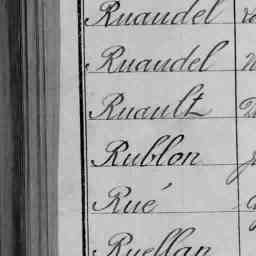 Ruaudel
Ruaudel
Ruault
Rublon
Rué
Ruellan